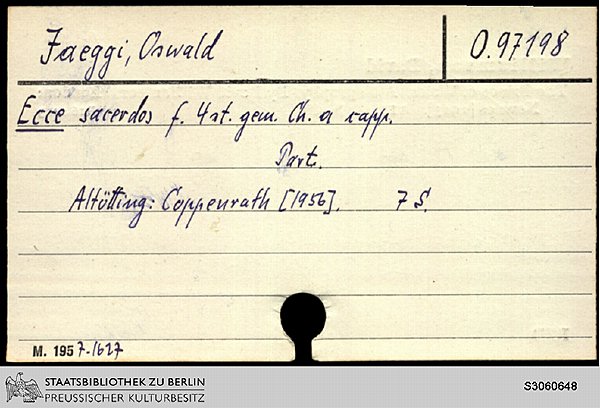 Jaeggi, Oswald
O.97198
Ecce sacerdos f. 4st. gem. Ch. a capp.
Part.
Altötting: Coppenrath [1956]. 7 S.
M. 1957-1627
STAATSBIBLIOTHEK ZU BERLIN
PREUSSISCHER KULTURBESITZ
S3060648